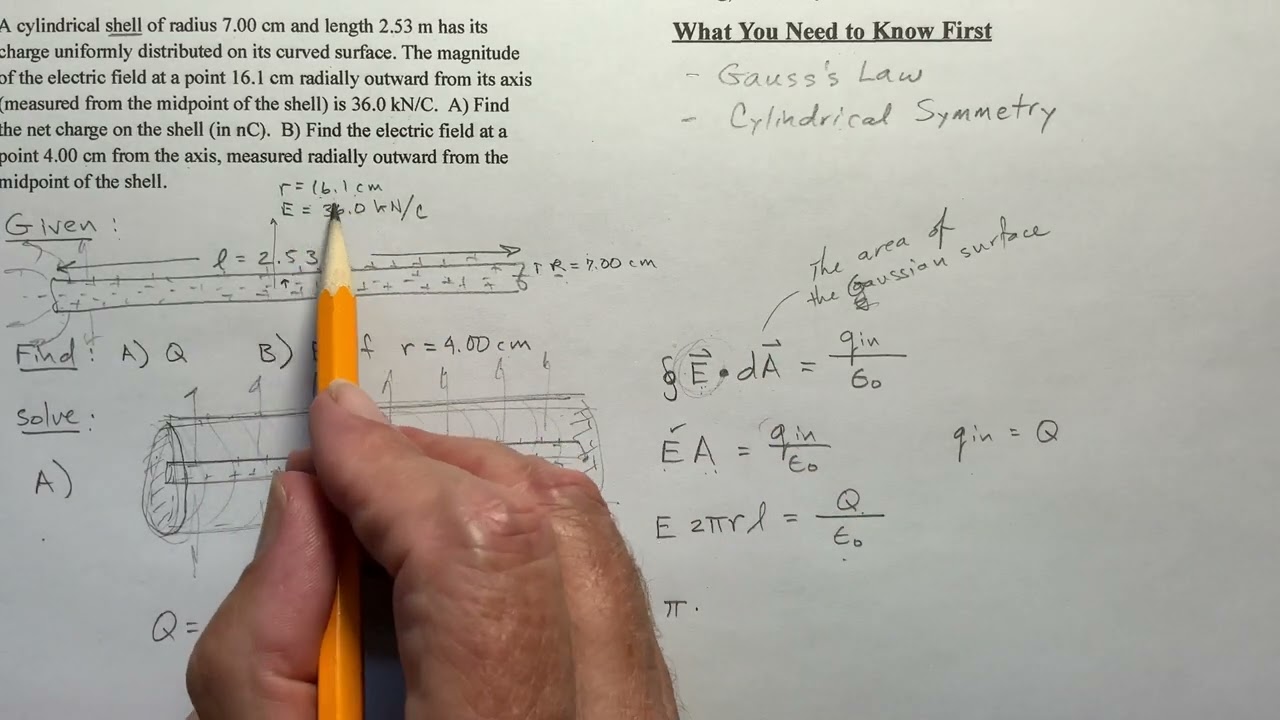 A cylindrical shell of radius 7.00 cm and length 2.53 m has its
charge uniformly distributed on its curved surface. The magnitude
of the electric field at a point 16.1 cm radially outward from its axis
(measured from the midpoint of the shell) is 36.0 kN/C. A) Find
the net charge on the shell (in nC). B) Find the electric field at a
point 4.00 cm from the axis, measured radially outward from the
midpoint of the shell.
r = 16.1 cm
E = 36.0 kN/C
Given :
l = 2.53
R = 7.00 cm
Find : A) Q B) r = 4.00 cm
Solve :
A)
Q =
π ·
What You Need to Know First
- Gauss's Law
- Cylindrical Symmetry
The area of
the Gaussian surface
∮ E⃗ • dA⃗ = qin / ϵ₀
E A = qin / ϵ₀ qin = Q
E 2πrl = Q / ϵ₀